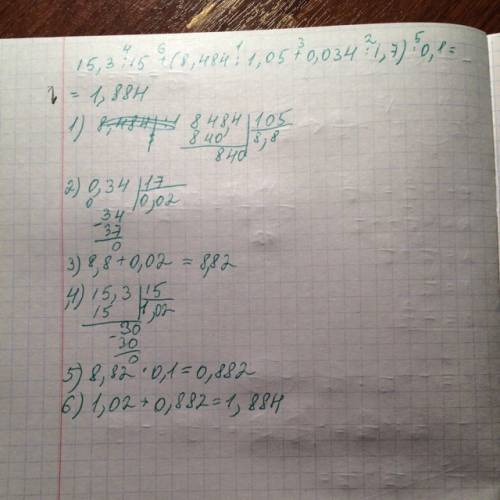 4 6 1 3 2 5
15,3 : 15 + (8,484 : 1,05 + 0,034 : 1,7) : 0,8 =
= 1,884
1) 848,4 | 105
840 8,8
840
2) 0,34 | 17
0 0,02
- 34
37
0
3) 8,8 + 0,02 = 8,82
4) 15,3 | 15
15 1,02
- 30
30
0
5) 8,82 · 0,1 = 0,882
6) 1,02 + 0,882 = 1,884